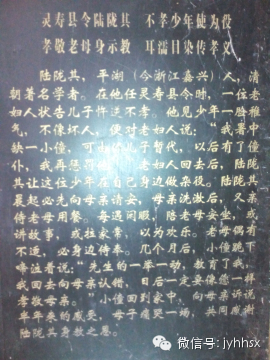 灵寿县令陆陇其 不孝少年使为役
孝敬老母身示教 耳濡目染传孝义
陆陇其，平湖（今浙江嘉兴）人，清
朝著名学者。在他任灵寿县令时，一位老
妇人状告儿子忤逆不孝。他见少年一脸稚
气，不像坏人，便对老妇人说：“我署中
缺一小僮，可
仆，我再惩
其让这位少年在自己身边做杂役。陆陇其
晨起必先向母亲请安，母亲洗漱后，又亲
侍老母用餐。每遇闲暇，陪老母安坐，或
讲故事，或拉家常，以为欢乐。老母偶有
不适，必身边侍奉。几个月后，小僮跪下
啼泣着说：“先生的一举一动，教育了我，
我回去向母亲认错，日后一定要像您一样
孝敬母亲。”小僮回到家中，向母亲诉说
年来来的感受，母子痛哭一场，共同感谢
陆陇其身教之恩。
微信号：jyhhsx